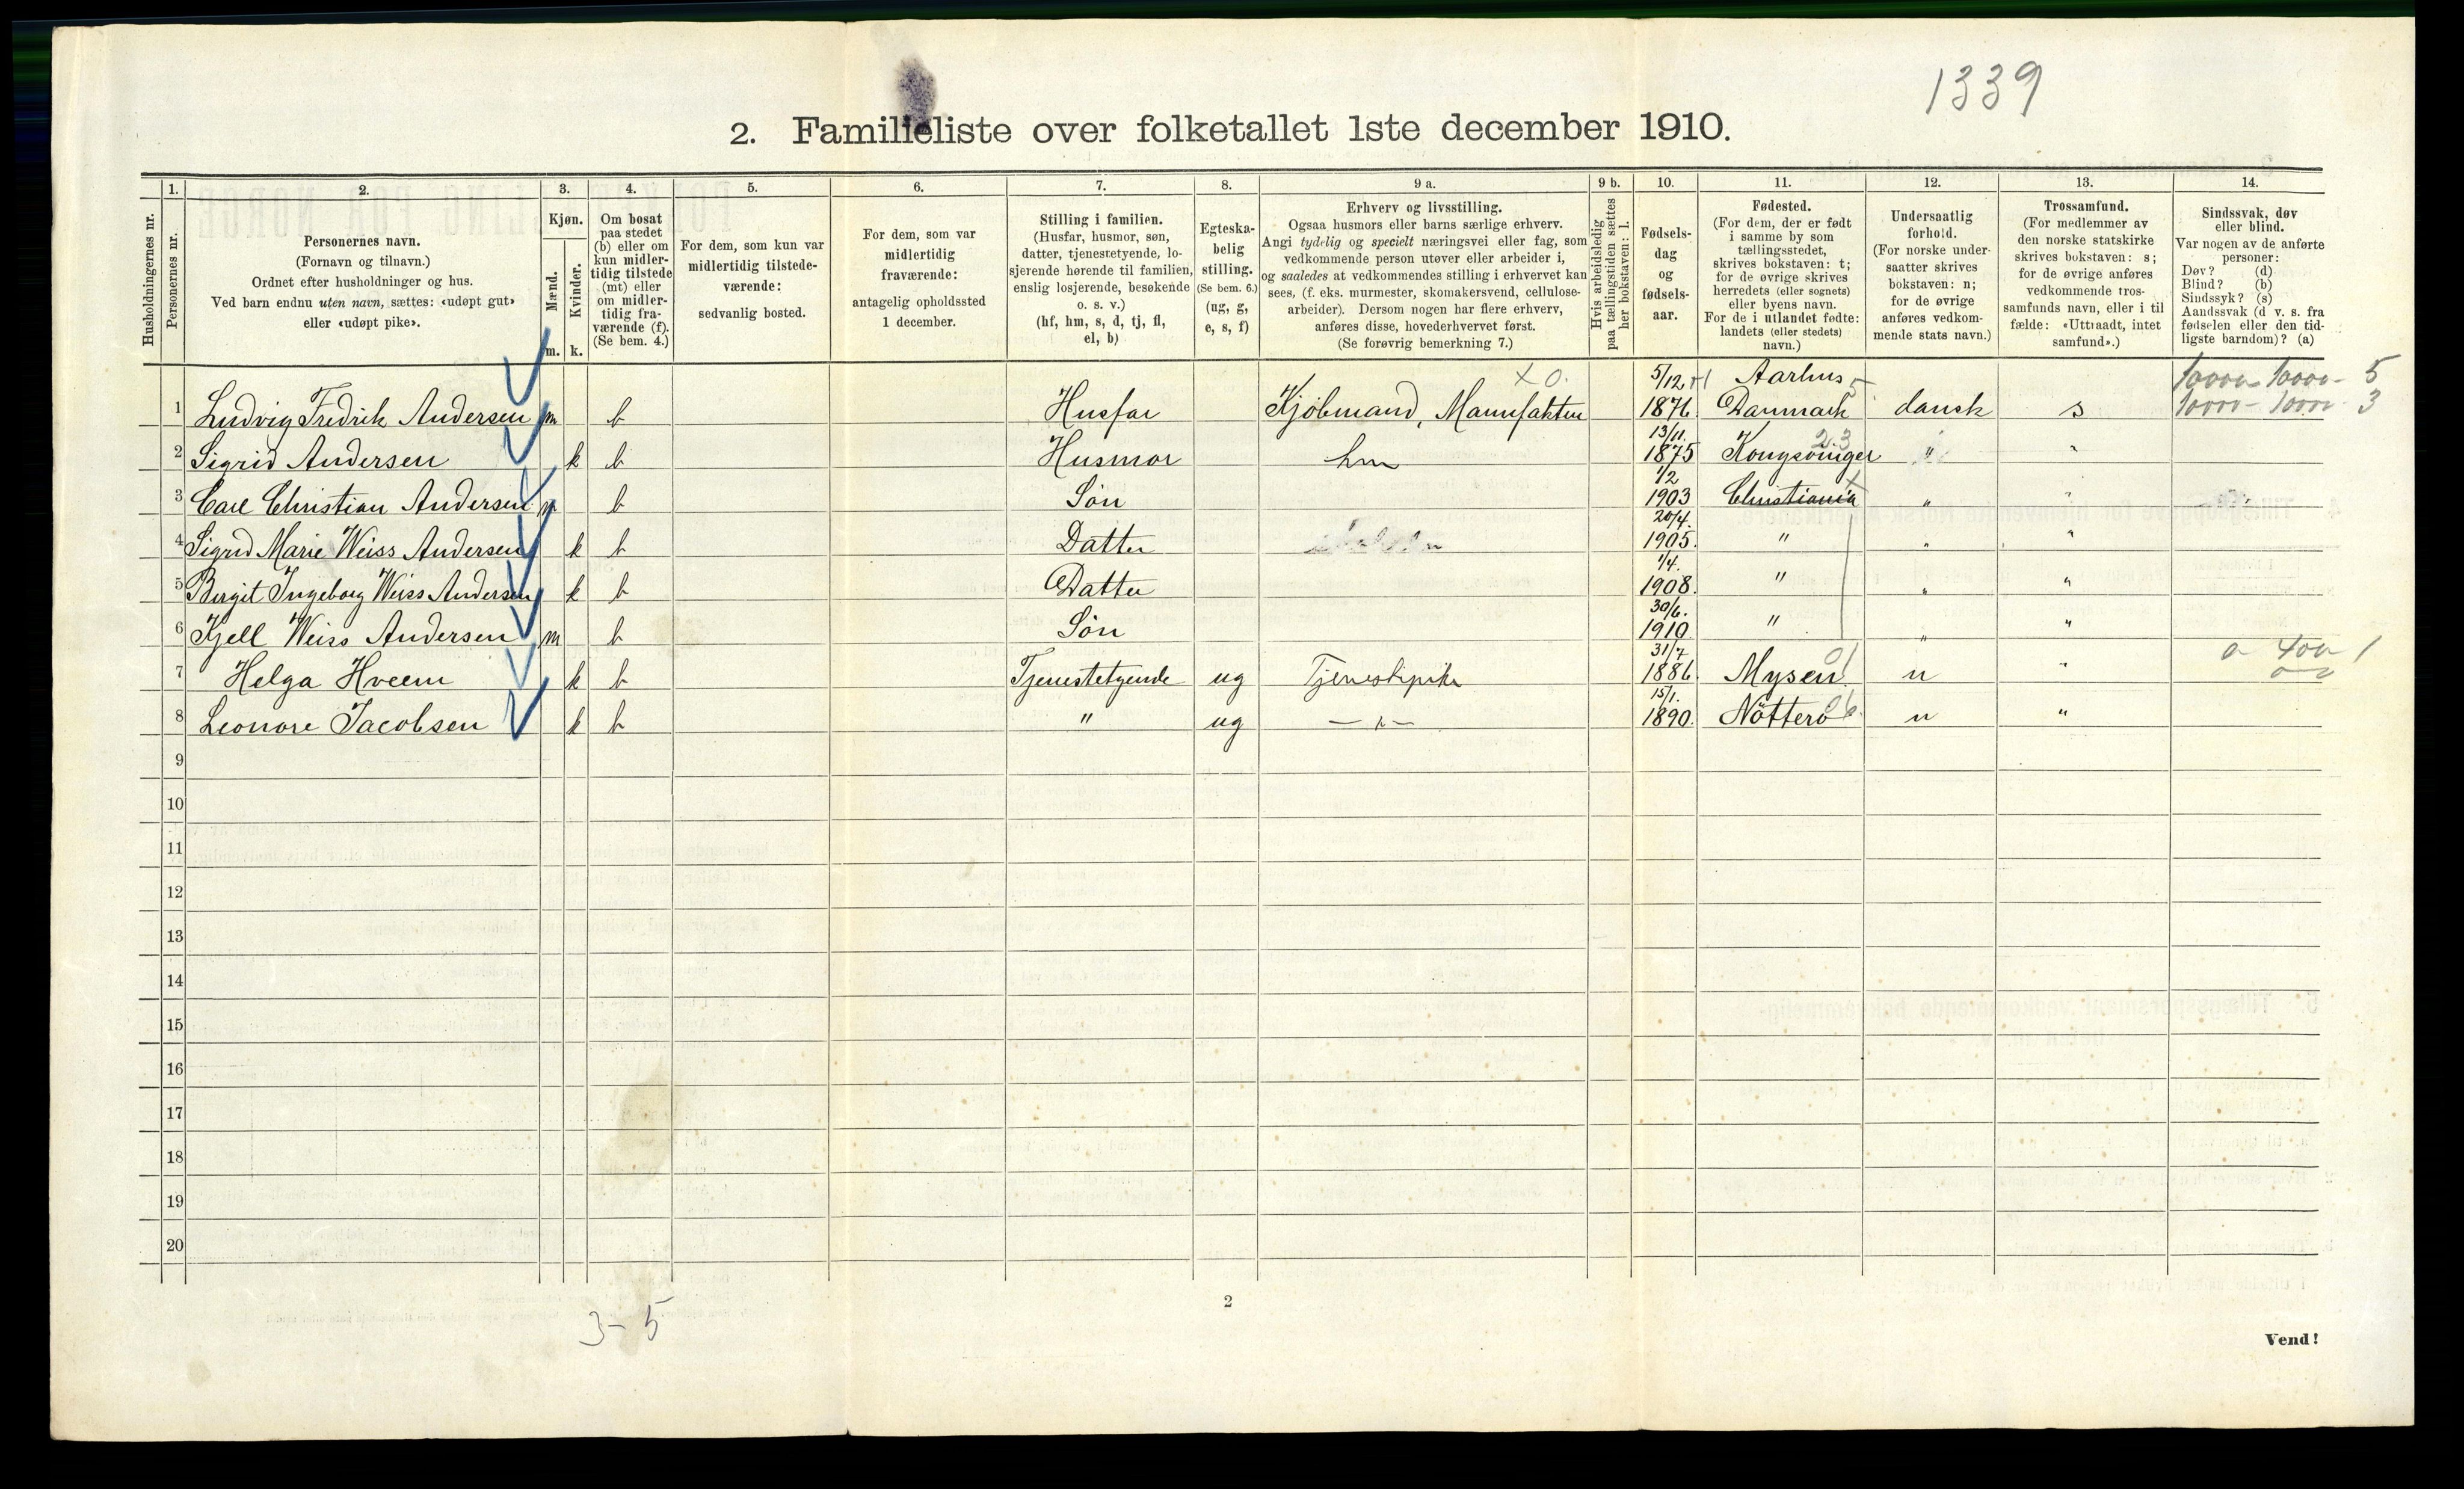 1339
2. Familieliste over folketallet 1ste december 1910.
1. 2. 3. 4. 5. 6. 7. 8. 9 a. 9 b. 10. 11. 12. 13. 14.
Husholdningernes nr.
Personernes nr.
Personernes navn.
(Fornavn og tilnavn.)
Ordnet efter husholdninger og hus.
Ved barn endnu uten navn, sættes: «udøpt gut»
eller «udøpt pike».
Kjøn.
Mænd.
Kvinder.
m. k.
Om bosat
paa stedet
(b) eller om
kun midler-
tidig tilstede
(mt) eller
om midler-
tidig fra-
værende (f).
(Se bem. 4.)
For dem, som kun var
midlertidig tilstede-
værende:
sedvanlig bosted.
For dem, som var
midlertidig
fraværende:
antagelig opholdssted
1 december.
Stilling i familien.
(Husfar, husmor, søn,
datter, tjenesretyende, lo-
sjerende hørende til familien,
enslig losjerende, besøkende
o. s. v.)
(hf, hm, s, d, tj, fl,
el, b)
Egteska-
belig
stilling.
(Se bem. 6.)
(ug, g,
e, s, f)
Erhverv og livsstilling.
Ogsaa husmors eller barns særlige erhverv.
Angi tydelig og specielt næringsvei eller fag, som
vedkommende person utøver eller arbeider i,
og saaledes at vedkommendes stilling i erhvervet kan
sees, (f. eks. murmester, skomakersvend, cellulose-
arbeider). Dersom nogen har flere erhverv,
anføres disse, hovederhvervet først.
(Se forøvrig bemerkning 7.)
Hvis arbeidsledig
paa tællingstiden sættes
her bokstaven: l.
Fødsels-
dag
og
fødsels-
aar.
Fødested.
(For dem, der er født
i samme by som
tællingsstedet,
skrives bokstaven: t;
for de øvrige skrives
herredets (eller sognets)
eller byens navn.
For de i utlandet fødte:
landets (eller stedets)
navn.)
Undersaatlig
forhold.
(For norske under-
saatter skrives
bokstaven: n;
for de øvrige
anføres vedkom-
mende stats navn.)
Trossamfund.
(For medlemmer av
den norske statskirke
skrives bokstaven: s;
for de øvrige anføres
vedkommende tros-
samfunds navn, eller i til
fælde: «Uttraadt, intet
samfund».)
Sindssvak, døv
eller blind.
Var nogen av de anførte
personer:
Døv? (d)
Blind? (b)
Sindssyk? (s)
Aandssvak (d v. s. fra
fødselen eller den tid-
ligste barndom)? (a)
x 0. 5/12 Aarhus 5 10000 - 10000 - 5
1 Ludvig Fredrik Andersen m b Husfar Kjøbmand, Manufaktur 1876 Danmark dansk s 10000 - 10000 - 3
13/11. 2.3
2 Sigrid Andersen k b Husmor hm 1875 Kongsvinger " "
1/2
3 Carl Christian Andersen m b Søn 1903 Christiania " "
20/4.
4 Sigrid Marie Weiss Andersen k b Datter 1905. " " "
1/4.
5 Birgit Ingeborg Weiss Andersen k b Datter 1908. " " "
30/6.
6 Kjell Weiss Andersen m b Søn 1910 " " "
31/7 01 0 400 1
7 Helga Hveem k b Tjenestetyende ug Tjenestepike 1886. Mysen n "
15/1. 06
8 Leonore Jacobsen k b " ug — " — 1890. Nötterö n "
9
10
11
12
13
14
15
16
17
18
19
20
3 - 5
2
Vend!